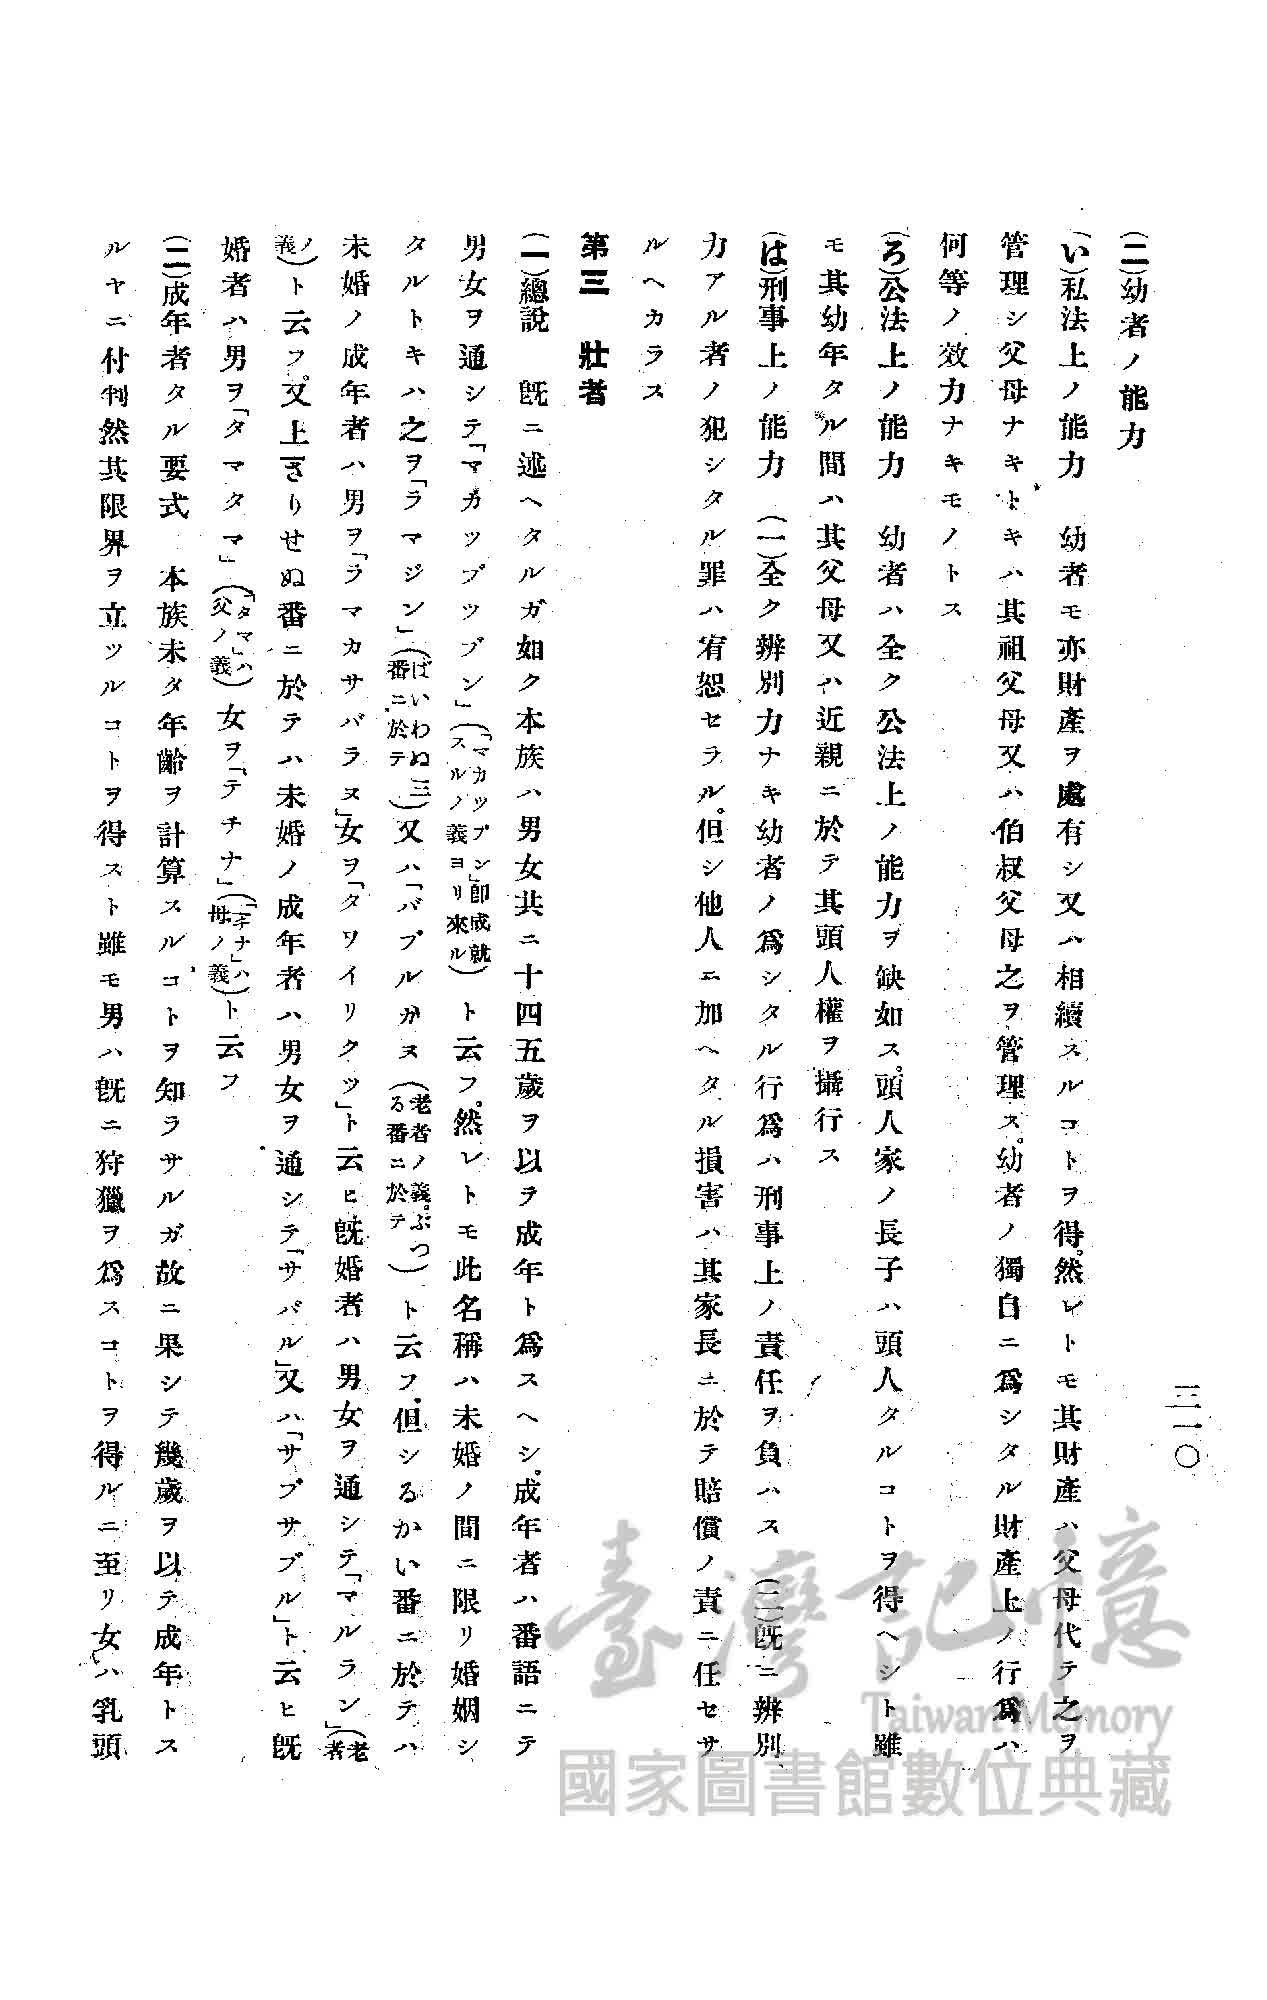 三一〇
(二)幼者ノ能力
(い)私法上ノ能力　幼者モ亦財產ヲ處有シ又ハ相續スルコトヲ得。然レトモ其財產ハ父母代テ之ヲ
管理シ父母ナキトキハ其祖父母又ハ伯叔父母之ヲ管理ス。幼者ノ獨自ニ爲シタル財產上ノ行爲ハ
何等ノ效力ナキモノトス
(ろ)公法上ノ能力　幼者ハ全ク公法上ノ能力ヲ缺如ス。頭人家ノ長子ハ頭人タルコトヲ得ヘシト雖
モ其幼年タル間ハ其父母又ハ近親ニ於テ其頭人權ヲ攝行ス
(は)刑事上ノ能力　(一)全ク辨別力ナキ幼者ノ爲シタル行爲ハ刑事上ノ責任ヲ負ハス　(二)旣ニ辨別
力アル者ノ犯シタル罪ハ宥恕セラル。但シ他人ニ加ヘタル損害ハ其家長ニ於テ賠償ノ責ニ任セサ
ルヘカラス
第三　壯者
(一)總說　旣ニ述ヘタルガ如ク本族ハ男女共ニ十四五歲ヲ以ラ成年ト爲スヘシ。成年者ハ番語ニテ
男女ヲ通シテ「マカツブツブン」(「マカツブン」卽成就スルノ義ヨリ來ル)ト云フ。然レトモ此名稱ハ未婚ノ間ニ限リ婚姻シ
タルトキハ之ヲ「ラマジン」(ばいわぬ三番ニ於テ)又ハ「バブルガヌ(老者ノ義。ぶつる番ニ於テ)ト云フ。但シるかい番ニ於テハ
未婚ノ成年者ハ男ヲ「ラマカサバラヌ」女ヲ「タワイリクツ」ト云ヒ旣婚者ハ男女ヲ通シテ「マルラン」(老者
ノ義)ト云フ。又上さりせぬ番ニ於ラハ未婚ノ成年者ハ男女ヲ通シテ「サバル」又ハ「サブサブル」ト云ヒ旣
婚者ハ男ヲ「タマタマ」(「タマ」ハ父ノ義)女ヲ「テチナ」(「チナ」ハ母ノ義)ト云フ
(二)成年者タル要式　本族未タ年齡ヲ計算スルコトヲ知ラサルガ故ニ果シテ幾歲ヲ以テ成年トス
ルヤニ付判然其限界ヲ立ツルコトヲ得スト雖モ男ハ旣ニ狩獵ヲ爲スコトヲ得ルニ至リ女ハ乳頭
臺灣記憶
Taiwan Memory
國家圖書館數位典藏